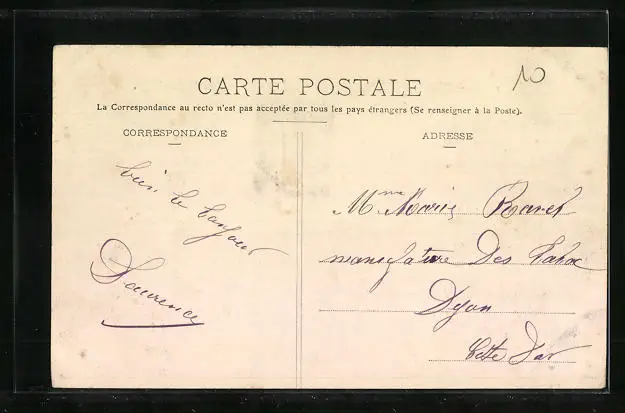 10
CARTE POSTALE
La Correspondance au recto n'est pas acceptée par tous les pays étrangers (Se renseigner à la Poste).
CORRESPONDANCE
ADRESSE
bien le bonjour
Laurence
Mme Marie
manufature Des Tabac
Dijon
Côte Dor